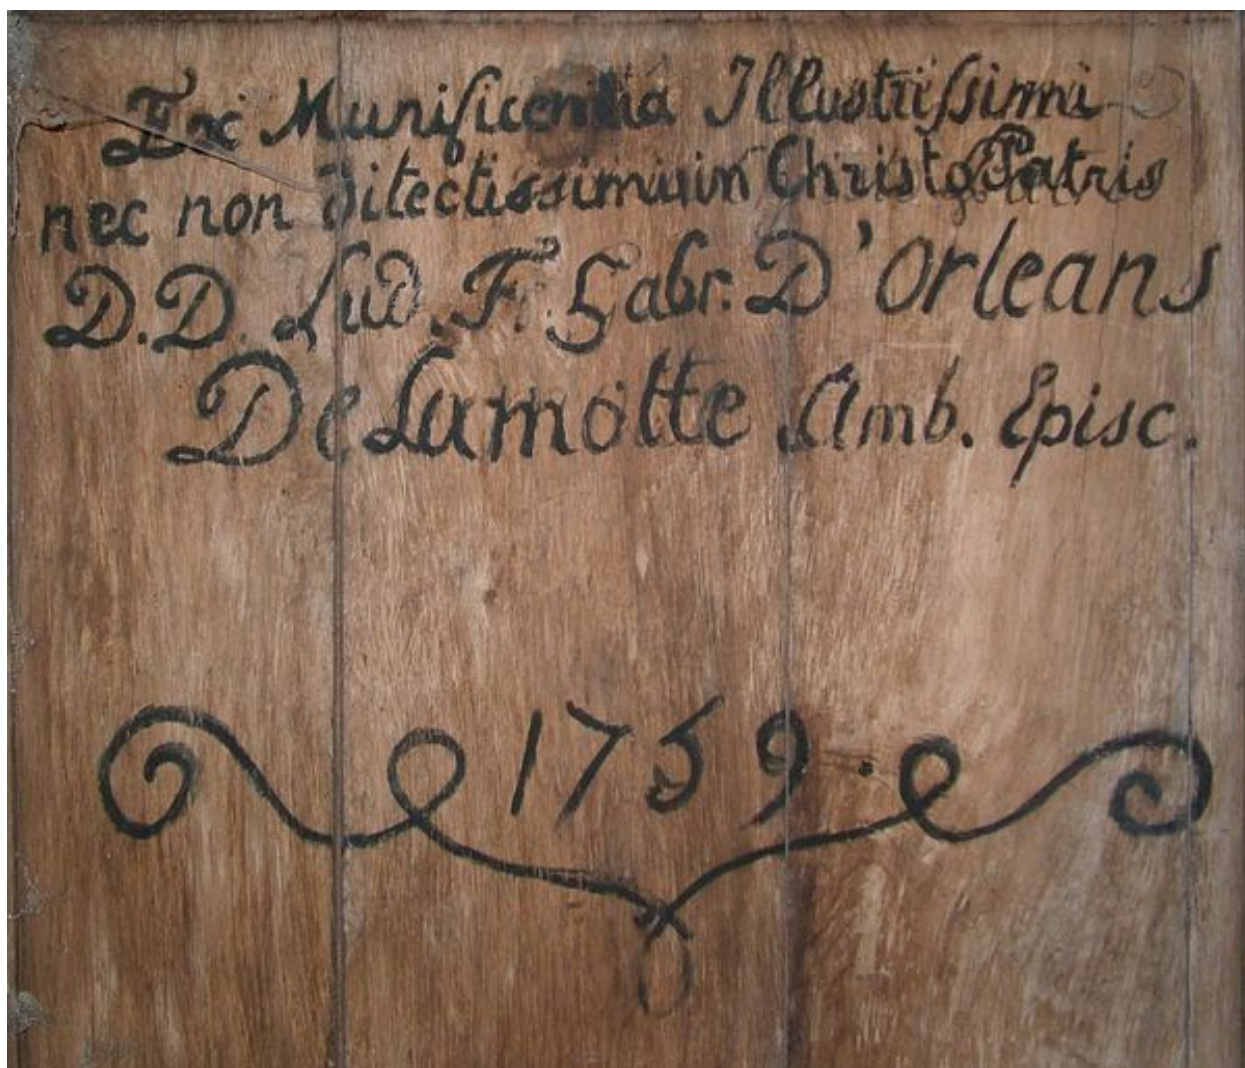 Ex Munificentia Illustrissimi
nec non Ditectissimi in Christo Patris
D.D. Lud. F. Gabr. D'Orleans
De Lamotte Amb. Episc.
1759